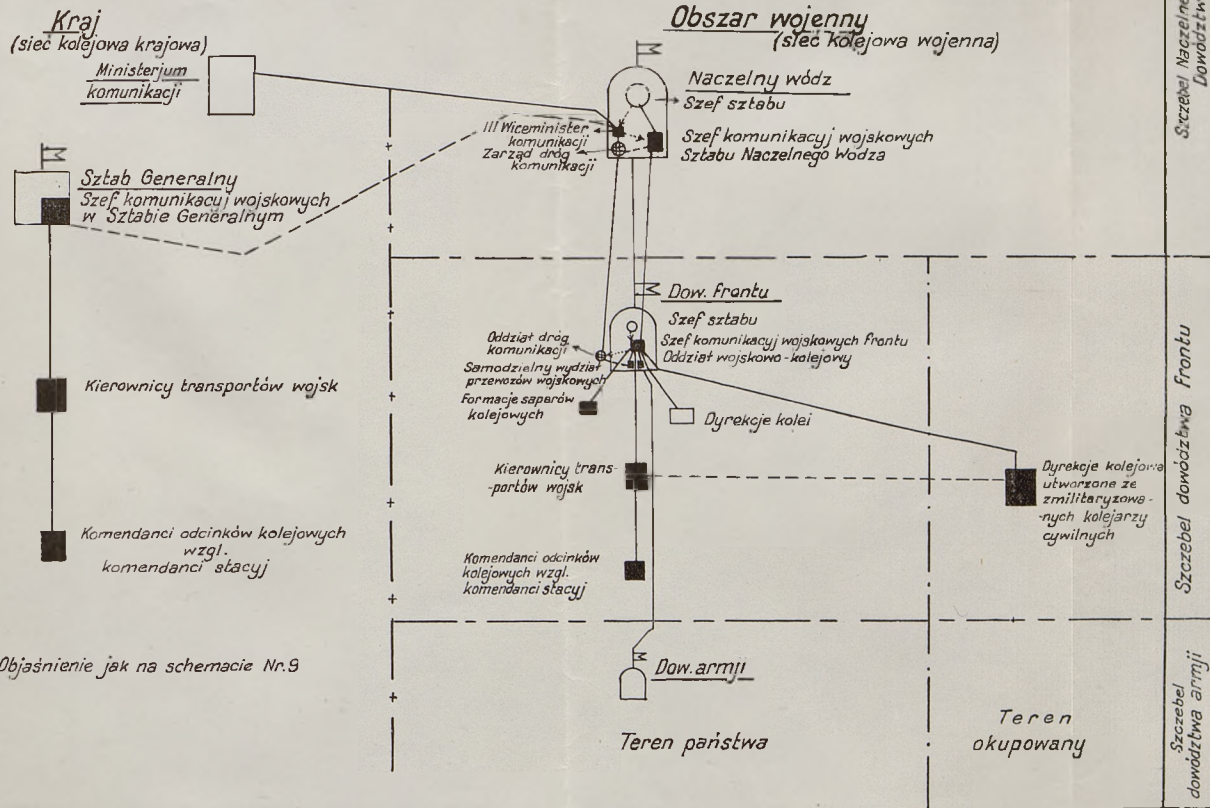 Kraj
(sieć kolejowa krajowa)
Ministerjum
komunikacji
Sztab Generalny
Szef komunikacyj wojskowych
w Sztabie Generalnym
Kierownicy transportów wojsk
Komendanci odcinków kolejowych
wzgl.
komendanci stacyj
Objaśnienie jak na schemacie Nr.9
Obszar wojenny
(sieć kolejowa wojenna)
Naczelny wódz
Szef sztabu
III Wiceminister
komunikacji
Zarząd dróg
komunikacji
Szef komunikacyj wojskowych
Sztabu Naczelnego Wodza
Dow. frontu
Szef sztabu
Szef komunikacyj wojskowych frontu
Oddział wojskowo-kolejowy
Oddział dróg
komunikacji
Samodzielny wydział
przewozów wojskowych
Formacje saperów
kolejowych
Dyrekcje kolei
Kierownicy trans-
-portów wojsk
Komendanci odcinków
kolejowych wzgl.
komendanci stacyj
Dyrekcje kolejowe
utworzone ze
zmilitaryzowa-
-nych kolejarzy
cywilnych
Dow. armji
Teren państwa
Teren
okupowany
Szczebel Naczelnego
Dowództwa
Szczebel dowództwa frontu
Szczebel
dowództwa armji